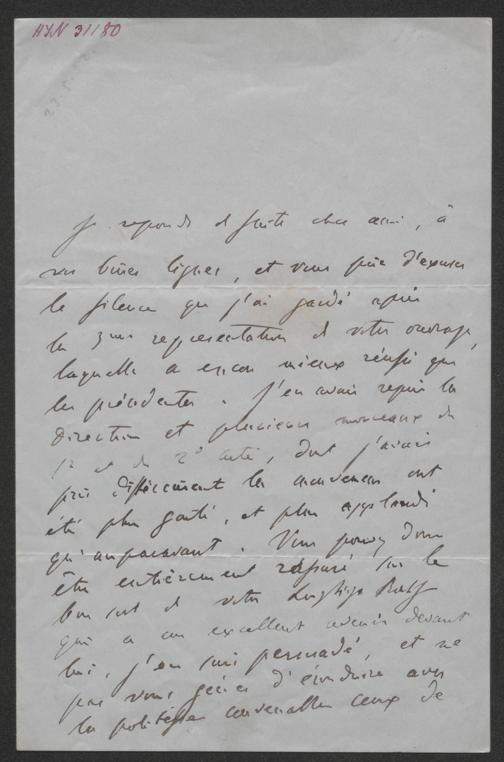 HXN 31/80
Je reponds de suite cher ami, à
vos lignes, et vous prie d'excuser
le silence que j'ai gardé après
la 3me representation de votre ouvrage,
laquelle a encor mieux réussi que
les précédentes. J'en avais repris la
direction et plusieurs morceaux du
1r et du 2d acte, dont j'avais
pris différement les mouvemens ont
été plus goutés, et plus applaudi
qu'auparavant. Vous pouvez donc
être entièrement rassuré sur le
bon sort de votre
qui a un excellent avenir devant
lui, j'en suis persuadé, et ne
pas vous gêner d'éconduire avec
la politesse convenable ceux de